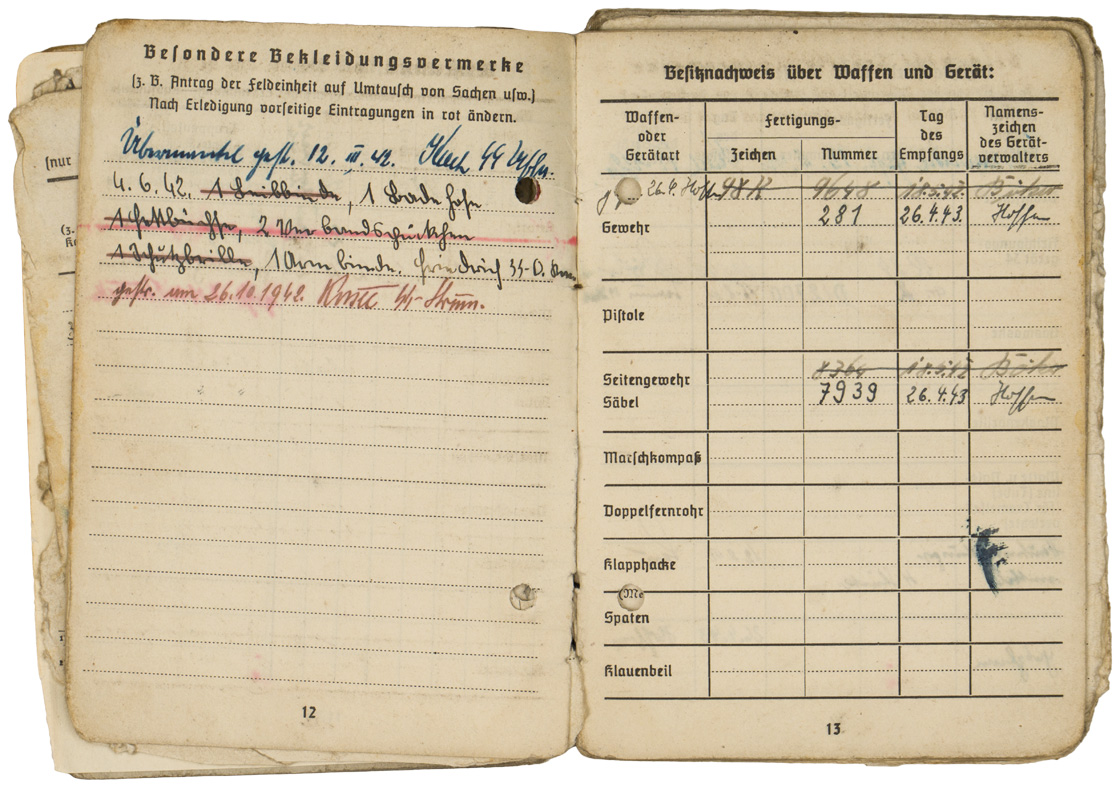 Besondere Bekleidungsvermerke
(z. B. Antrag der Feldeinheit auf Umtausch von Sachen usw.)
Nach Erledigung vorseitige Eintragungen in rot ändern.
12. III. 42.
4. 6. 42. 1 Leibbinde, 1 Badehose
1 Fettbüchse, 2 Verbandspäckchen
1 Schutzbrille, 1 Armbinde. Friedrich
gestr. am 26.10.1942.
12
(nur
(z.
Besitznachweis über Waffen und Gerät:
Waffen- oder Gerätart
Fertigungs-
Zeichen
Nummer
Tag des Empfangs
Namenszeichen des Gerätverwalters
98K 9648 18.5.42
Gewehr 281 26.4.43. Hoffm
Pistole
Seitengewehr
Säbel 7939 26.4.43 Hoffm
Marschkompaß
Doppelfernrohr
Klapphacke
Spaten
Klauenbeil
13